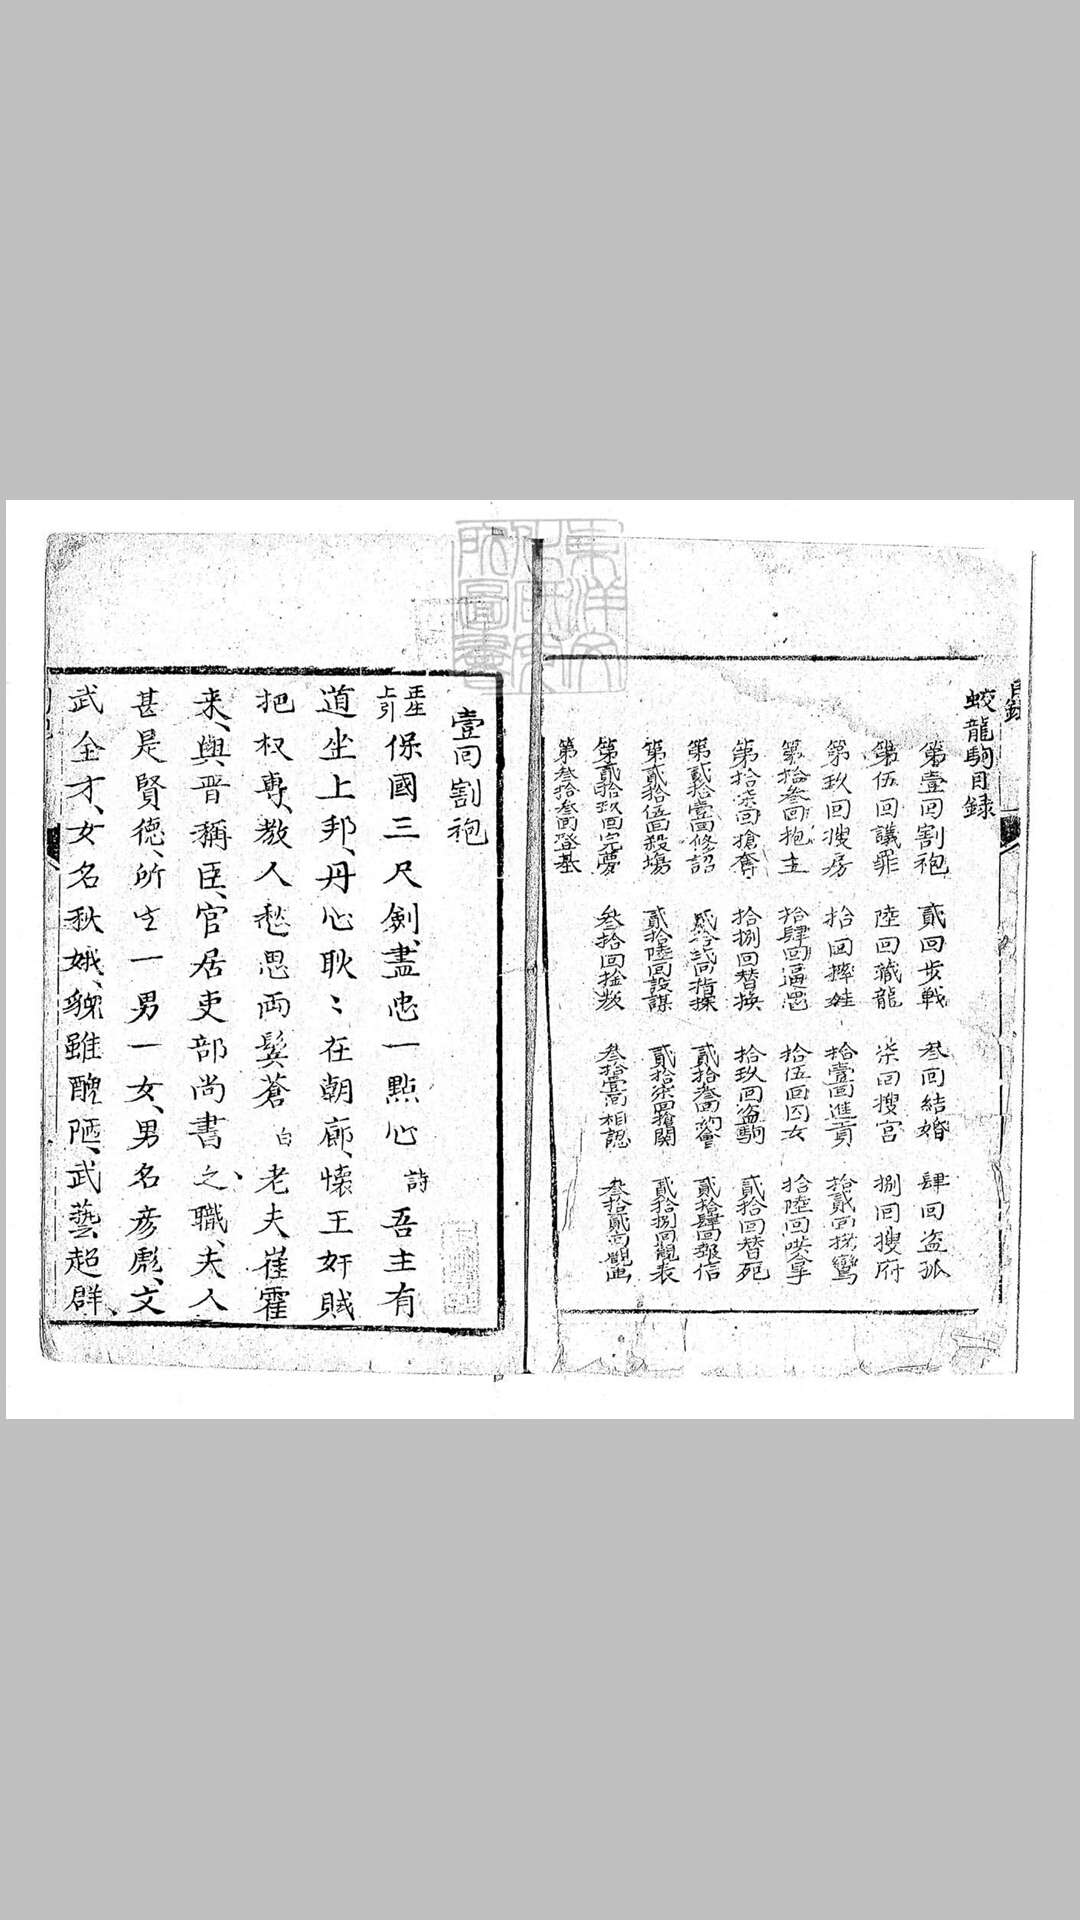 目録
蛟龍駒目録
第壹回割袍 貳回步戰 叁回結婚 肆回盗孤
第伍回議罪 陸回藏龍 柒回搜宮 捌回搜府
第玖回搜房 拾回摔娃 拾壹回進貢 拾貳回
第拾叁回抱主 拾肆回逼 拾伍回囚女 拾陸回拿
第拾柒回搶奪 拾捌回替换 拾玖回盗駒 貳拾回替死
第貳拾壹回修詔 貳拾弍回指 貳拾叁回約會 貳拾肆回報信
第貳拾伍回殺場 貳拾陸回設謀 貳拾柒回搶関 貳拾捌回觀表
第貳拾玖回完夢 叁拾回 叁拾壹回相認 叁拾貳回觀画
第叁拾叁回登基
東洋文化研究所圖書
壹回割袍
正生上引 保國三尺劍、盡忠一點心 詩 吾主有
道坐上邦、丹心耿〻在朝廊、懷王奸賊
把权專、教人愁思両鬂蒼 白 老夫崔霍
来、與晋稱臣、官居吏部尚書之職、夫人
甚是賢德、所生一男一女、男名彦彪、文
武全才、女名秋娥、貌雖醜陋、武藝超群、